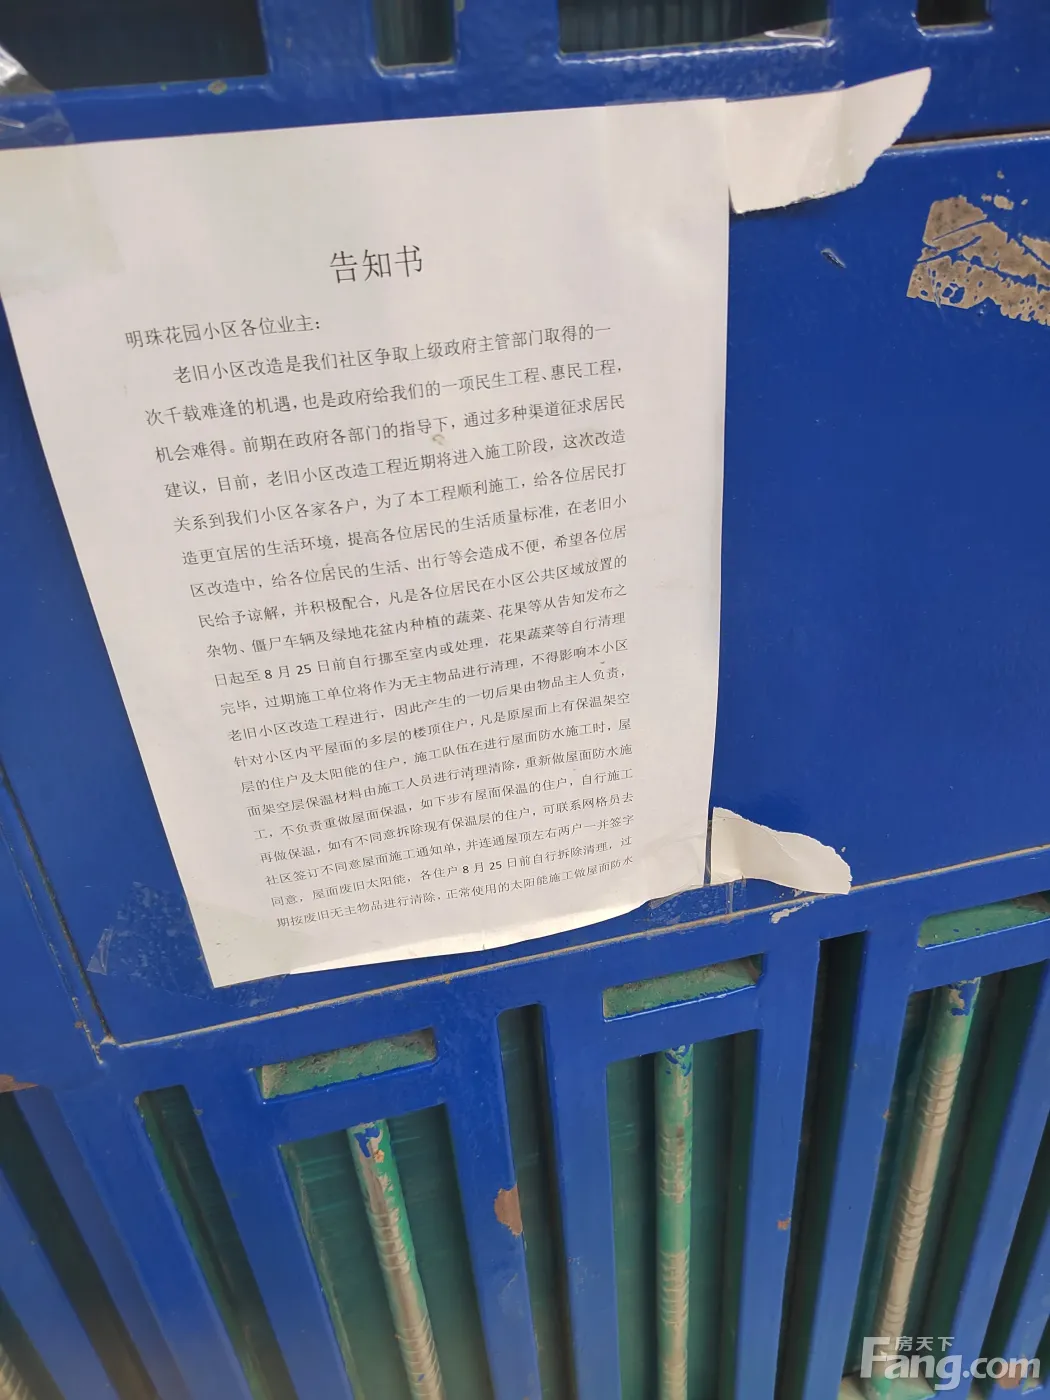 告知书
明珠花园小区各位业主：
老旧小区改造是我们社区争取上级政府主管部门取得的一
次千载难逢的机遇，也是政府给我们的一项民生工程、惠民工程，
机会难得。前期在政府各部门的指导下，通过多种渠道征求居民
建议，目前，老旧小区改造工程近期将进入施工阶段，这次改造
关系到我们小区各家各户，为了本工程顺利施工，给各位居民打
造更宜居的生活环境，提高各位居民的生活质量标准，在老旧小
区改造中，给各位居民的生活、出行等会造成不便，希望各位居
民给予谅解，并积极配合，凡是各位居民在小区公共区域放置的
杂物、僵尸车辆及绿地花盆内种植的蔬菜、花果等从告知发布之
日起至8月25日前自行挪至室内或处理，花果蔬菜等自行清理
完毕，过期施工单位将作为无主物品进行清理，不得影响本小区
老旧小区改造工程进行，因此产生的一切后果由物品主人负责，
针对小区内平屋面的多层的楼顶住户，凡是原屋面上有保温架空
层的住户及太阳能的住户，施工队伍在进行屋面防水施工时，屋
面架空层保温材料由施工人员进行清理清除，重新做屋面防水施
工，不负责重做屋面保温，如下步有屋面保温的住户，自行施工
再做保温，如有不同意拆除现有保温层的住户，可联系网格员去
社区签订不同意屋面施工通知单，并连通屋顶左右两户一并签字
同意，屋面废旧太阳能，各住户8月25日前自行拆除清理，过
期按废旧无主物品进行清除，正常使用的太阳能施工做屋面防水
房天下
Fang.com